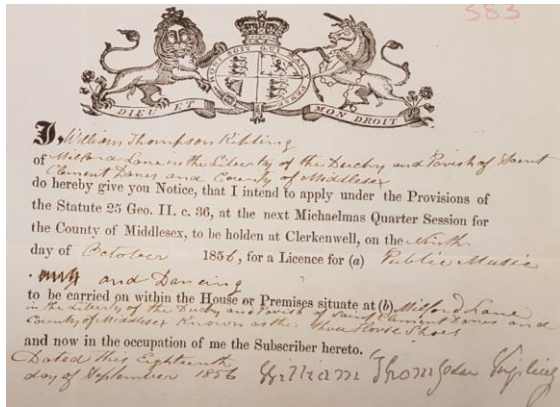 583
HONI SOIT QUI MAL Y PENSE
DIEU ET MON DROIT
I, William Thompson Kipling
of Milford Lane in the Liberty of the Duchy and Parish of Saint
Clement Danes and County of Middlesex
do hereby give you Notice, that I intend to apply under the Provisions of
the Statute 25 Geo. II. c. 36, at the next Michaelmas Quarter Session for
the County of Middlesex, to be holden at Clerkenwell, on the Ninth
day of October 1856, for a Licence for (a) Public Music
and Dancing
to be carried on within the House or Premises situate at (b) Milford Lane
in the Liberty of the Duchy and Parish of Saint Clement Danes and
County of Middlesex Known as the Three Horse Shoes
and now in the occupation of me the Subscriber hereto.
Dated this Eighteenth
day of September 1856 William Thompson Kipling